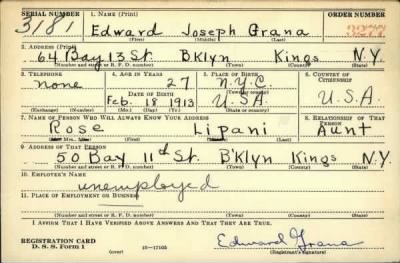 SERIAL NUMBER 1. NAME (Print) ORDER NUMBER
3181 Edward Joseph Grana
(First) (Middle) (Last)
2. ADDRESS (Print)
64 Bay 13 St. B'Klyn Kings N.Y.
(Number and street or R. F. D. number) (Town) (County) (State)
3. TELEPHONE 4. AGE IN YEARS 5. PLACE OF BIRTH 6. COUNTRY OF CITIZENSHIP
none 27 N.Y.C.
DATE OF BIRTH (Town or county)
Feb. 18 1913 U.S.A. U.S.A.
(Exchange) (Number) (Mo.) (Day) (Yr.) (State or country)
7. NAME OF PERSON WHO WILL ALWAYS KNOW YOUR ADDRESS 8. RELATIONSHIP OF THAT PERSON
Rose Lipani Aunt
(Mr., Mrs., Miss) (First) (Middle) (Last)
9. ADDRESS OF THAT PERSON
50 Bay 11th St. B'Klyn Kings N.Y.
(Number and street or R. F. D. number) (Town) (County) (State)
10. EMPLOYER'S NAME
unemployed
11. PLACE OF EMPLOYMENT OR BUSINESS
(Number and street or R. F. D. number) (Town) (County) (State)
I AFFIRM THAT I HAVE VERIFIED ABOVE ANSWERS AND THAT THEY ARE TRUE.
REGISTRATION CARD
D. S. S. Form 1 (over) 16—17105 Edward Grana
(Registrant's signature)